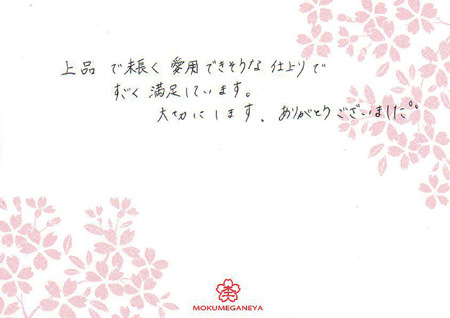 上品で末長く愛用できそうな仕上りで
すごく満足しています。
大切にします。ありがとうございました。
MOKUMEGANEYA